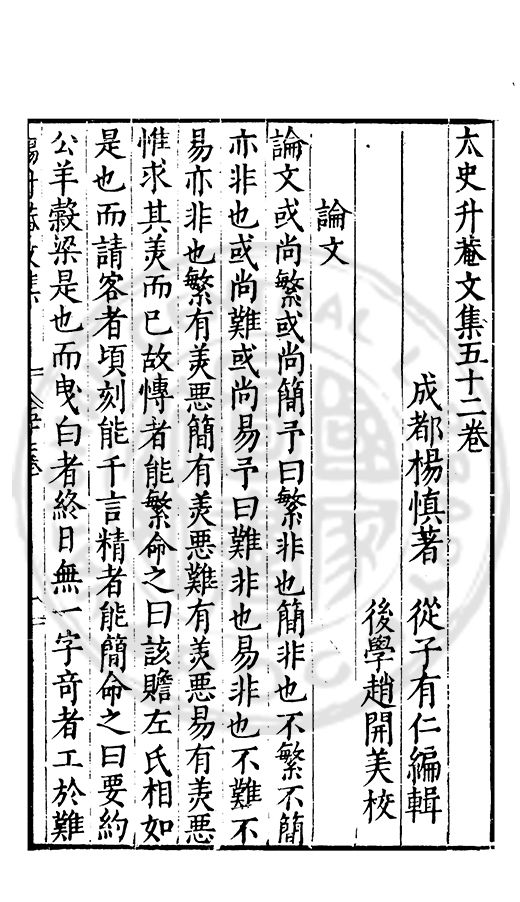 太史升菴文集五十二卷
成都楊慎著　從子有仁編輯
後學趙開美校
論文
論文或尚繁或尚簡予曰繁非也簡非也不繁不簡
亦非也或尚難或尚易予曰難非也易非也不難不
易亦非也繁有羙惡簡有羙惡難有羙惡易有羙惡
惟求其羙而已故愽者能繁命之曰該贍左氏相如
是也而請客者頃刻能千言精者能簡命之曰要約
公羊糓梁是也而曳白者終日無一字竒者工於難